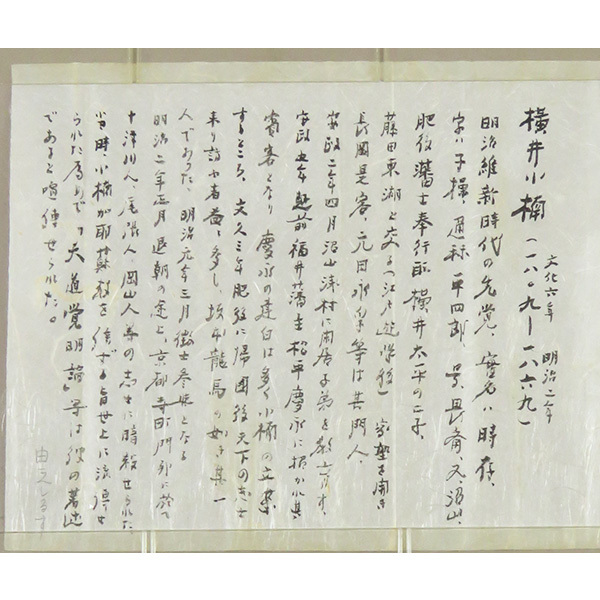 横井小楠(一八〇九ー一八六九)
文化六年 明治二年
明治維新時代の先覚、実名ハ時存、
字ハ子操、通称平四郎、号、畏斎、又、沼山、
肥後藩士奉行取横井太平の二子、
藤田東湖と交る(江戸遊学後)家塾を開き
長岡是容、元田永孚等は其門人、
安政二年四月沼山津村に閑居子弟を教育す、
安政五年越前福井藩主松平慶永に招かれ其
賓客となり慶永の建白は多く小楠の立案
するところ、文久三年肥後に帰国後天下の志士
来り訪ふ者益々多し、坂本龍馬の如き其一
人であつた、明治元年三月徴士参与となる
明治二年正月退朝の途上、京都寺町門外に於て
十津川人、尾張人、岡山人等の志士に暗殺せられた、
当時、小楠が耶蘇教を信ずる旨世上に流傳せ
られた為めで、「天道覚明論」等は彼の著述
であると喧傳せられた。